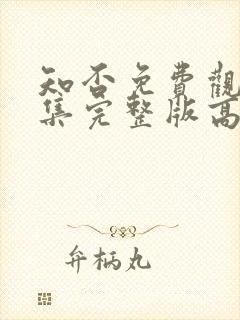 知否免費觀
集完整版高
弁柄丸